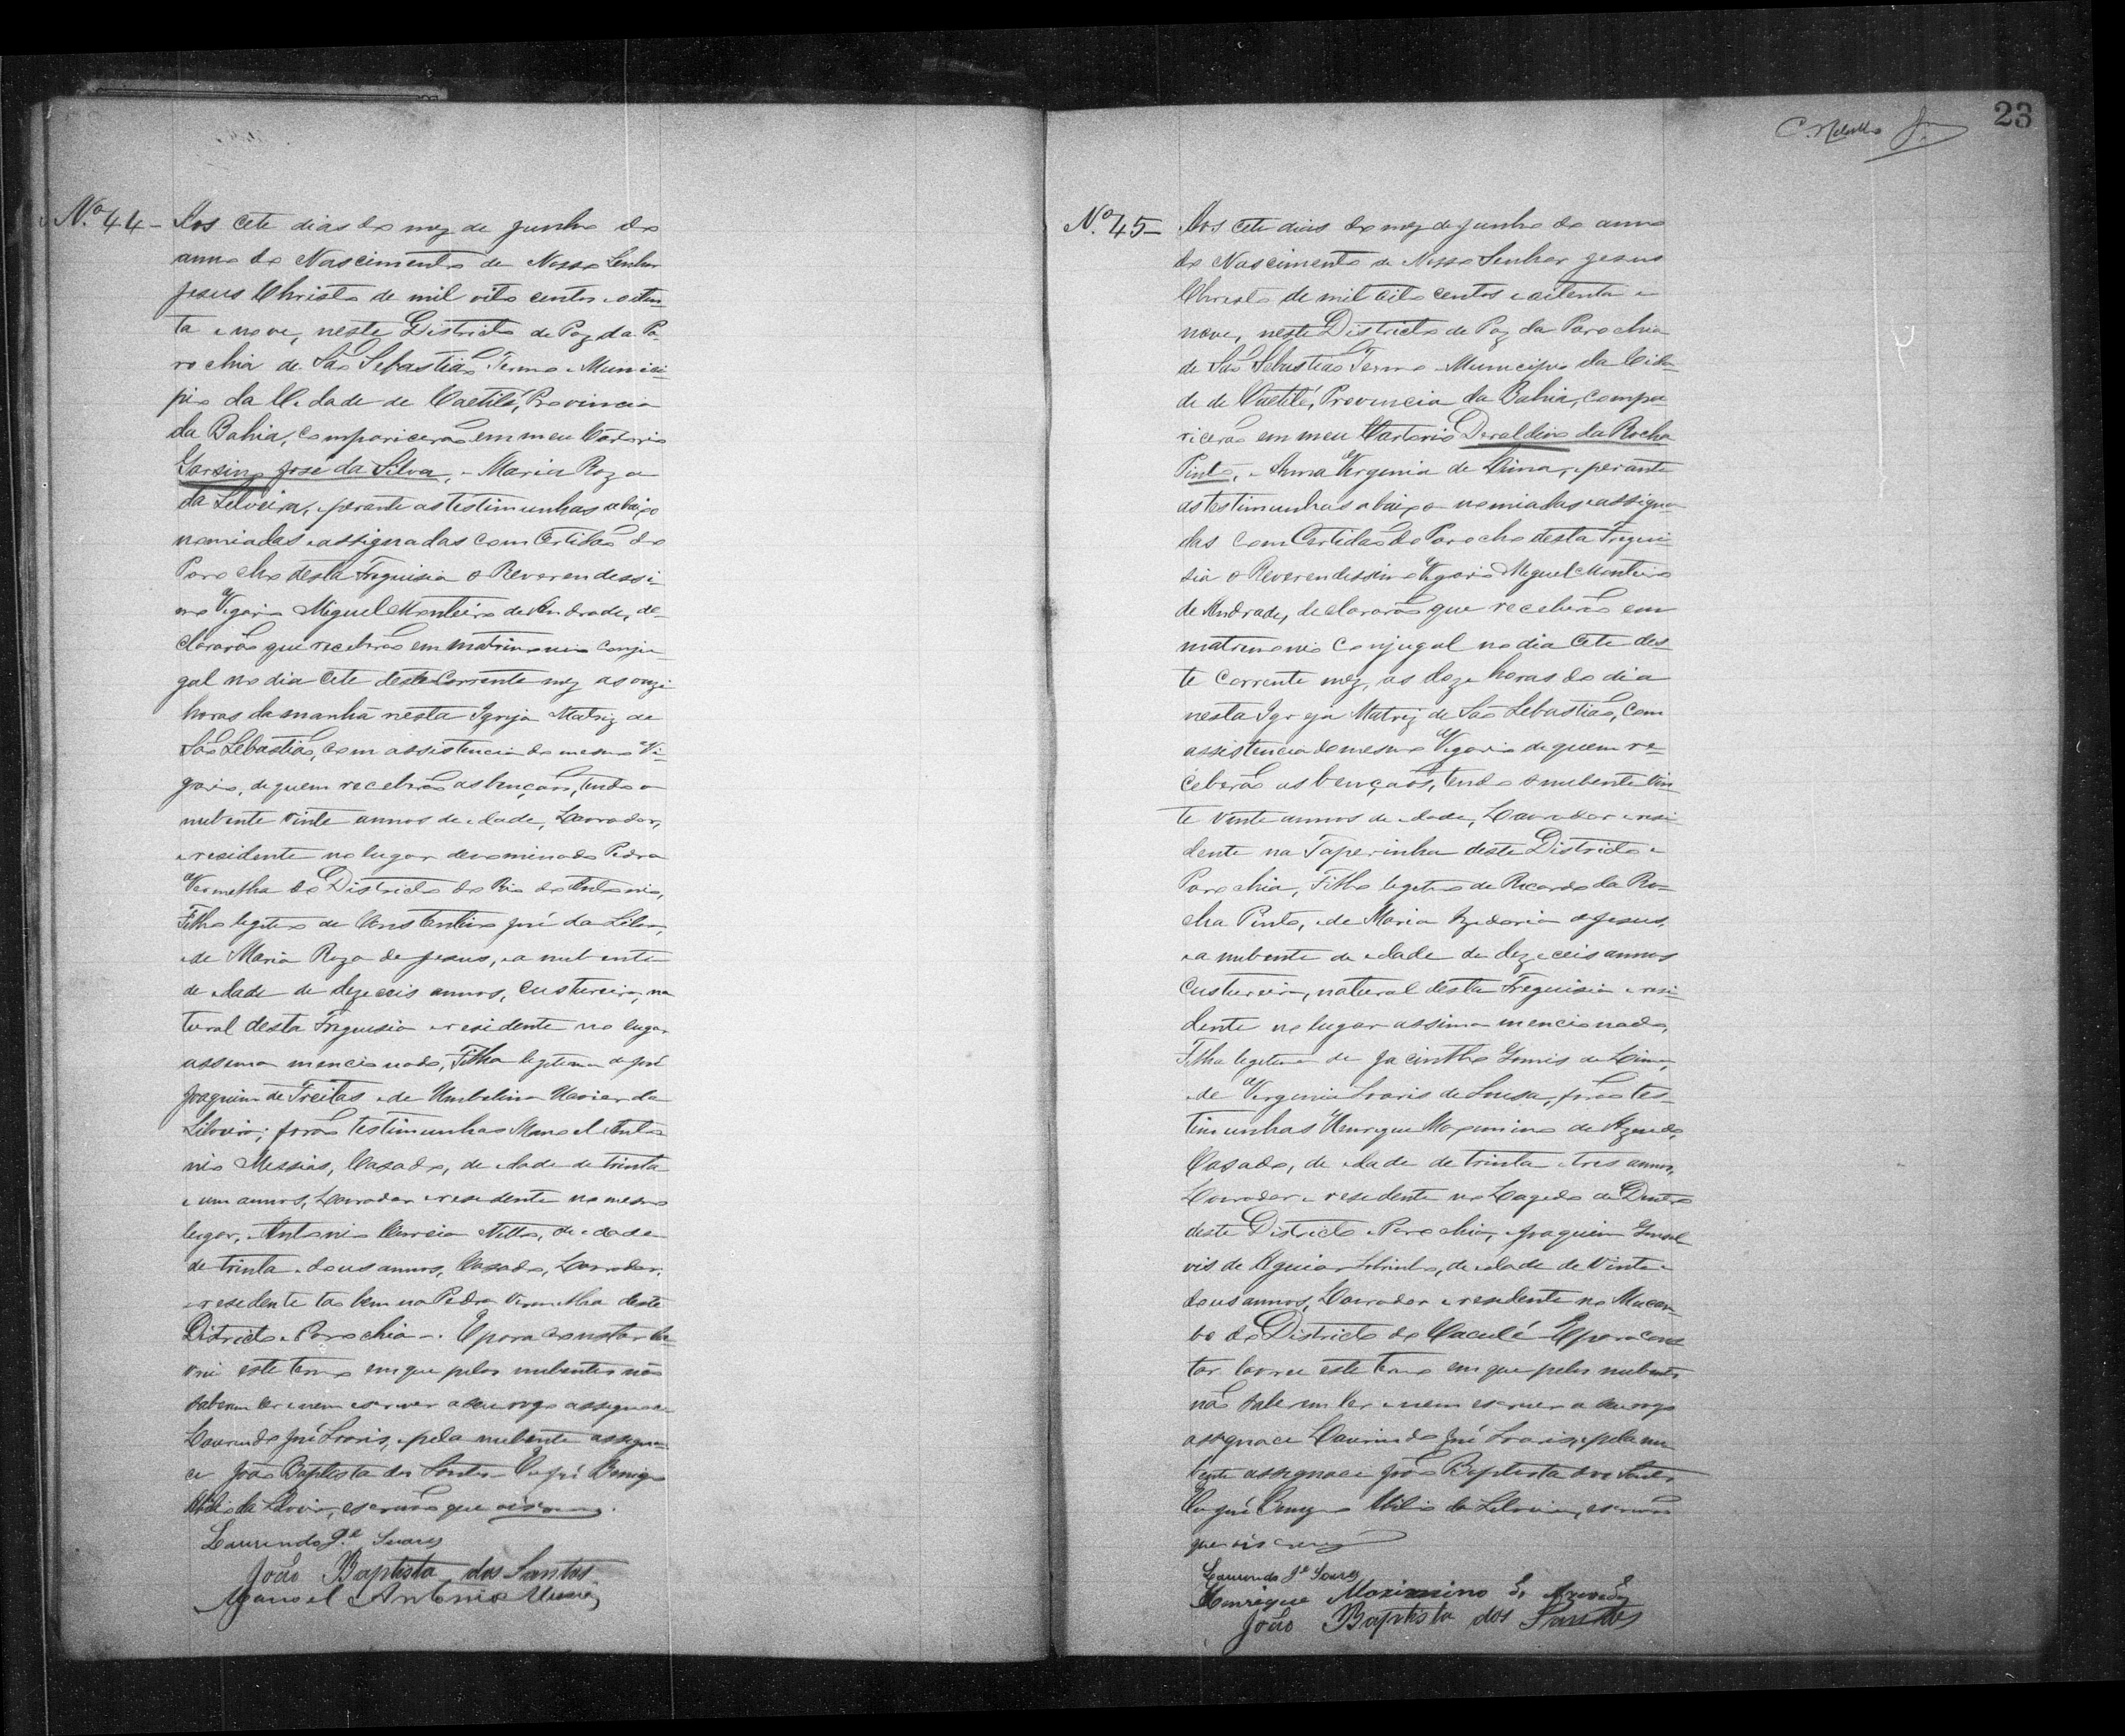 23
Nº 44 - Aos cete dias do mez de Junho do
anno do Nascimento de Nosso Senhor
Jesus Christo de mil oito centos e oiten-
ta e nove, neste Districto de Paz da Pa-
rochia de São Sebastião Termo e Munici-
pio da Cidade de Caetité, Provincia
da Bahia, comparicerão em meu Cartorio
José da Silva, e Maria Roza
da Silveira, e perante as testimunhas abaixo
nomiadas e assignadas com Certidão do
Parocho desta Freguisia o Reverendessi-
mo Vigario Miguel Monteiro de Andrade, de-
clararão que receberão em matrimonio conju-
gal no dia cete deste Corrente mez as onze
horas da manhã nesta Igreja Matriz de
São Sebastião, com assistencia do mesmo Vi-
gario, de quem receberão as bençãos, tendo o
nubente vinte annos de idade, Lavrador,
e residente no lugar denominado Pedra
Vermelha do Districto do Rio do Antonio,
Filho legitimo de Constantino José da Silva,
e de Maria Roza de Jesus, e a nubente
de idade de dezeceis annos, custureira, na
tural desta Freguisia e residente no lugar
assima mencionado, Filha legitima de José
Joaquim de Freitas e de Umbelina Xavier da
Silveira; forão testimunhas Manoel Anto
nio Messias, Casado, de idade de trinta
e um annos, Lavrador e residente no mesmo
lugar, e Antonio Correia Netto, de idade
de trinta e dous annos, Casado, Lavrador,
e residente tão bem na Pedra Vermelha deste
Districto e Parochia. E para constar la-
vrei este termo em que pelos nubentes não
saberem ler e nem escrever a seu rogo assignace
Laurindo José Soares, e pela nubente assigna-
ce João Baptista dos Santos. Eu José Benigno
da Silveira, escrivão que o iscrevy.
Laurindo Je. Soares
João Baptista dos Santos
Manoel Antonio Messias
Nº 45 - Aos cete dias do mez de Junho do anno
do Nascimento de Nosso Senhor Jesus
Christo de mil oito centos e oitenta e
nove, neste Districto de Paz da Parochia
de São Sebastião Termo e Municipio da Cida-
de de Caetité, Provincia da Bahia, compa-
ricerão em meu Cartorio Deraldino da Rocha
Pinto, e Anna Virginia de Lima, e perante
as testimunhas abaixo nomiadas e assigna-
das com Certidão do Parocho desta Fregui-
sia o Reverendessimo Vigario Miguel Monteiro
de Andrade, declararão que receberão em
matrimonio conjugal no dia cete des-
te corrente mez, as doze horas do dia
nesta Igreja Matriz de São Sebastião, com
assistencia do mesmo Vigario de quem re-
ceberão as bençãos, tendo o nubente vin-
te vinte annos de idade, Lavrador e resi-
dente na Taperinha deste Districto e
Parochia, Filho legitimo de Ricardo da Ro-
cha Pinto, e de Maria Izidoria de Jesus,
e a nubente de idade de dezeceis annos
custureira, natural desta Freguisia e resi-
dente no lugar assima mencionado,
Filha legitima de Jacintho Gomis de Lima,
e de Virginia Soaris de Sousa, forão tes-
timunhas Henrique Maximino de Azevedo,
Casado, de idade de trinta e tres annos,
Lavrador e residente no Lagedo de Dentro
deste Districto e Parochia, e Joaquim Gonsal
vis de Aguiar Sobrinho, de idade de vinte e
dous annos, Lavrador e residente no Mucam-
bo do Districto de Caculé. E para cons
tar lavrei este termo em que pelos nubentes
não saberem ler e nem escrever a seu rogo
assignace Laurindo José Soaris, e pela nu-
bente assignace João Baptista dos Santos
Eu José Benigno da Silveira, escrivão
que o iscrevy
Laurindo Je. Soares
Henrique Maximino de Azevedo
João Baptista dos Santos